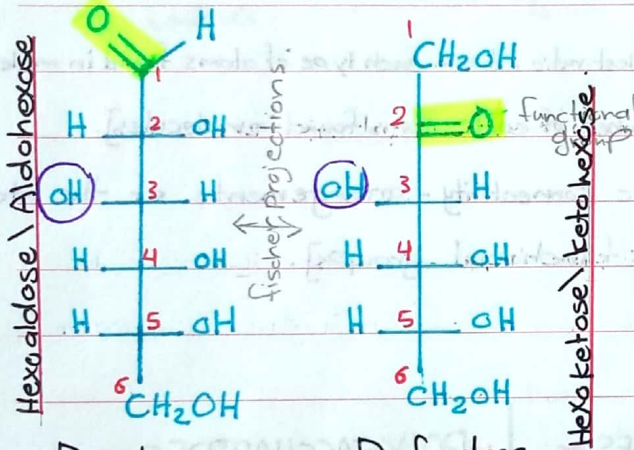 Hexoaldose \ Aldohexose
O H
1
H 2 OH
OH 3 H
H 4 OH
H 5 OH
6
CH2OH
fischer projections.
1
CH2OH
2 O functional
group
OH 3 H
H 4 OH
H 5 OH
6
CH2OH
Hexoketose \ ketohexose.